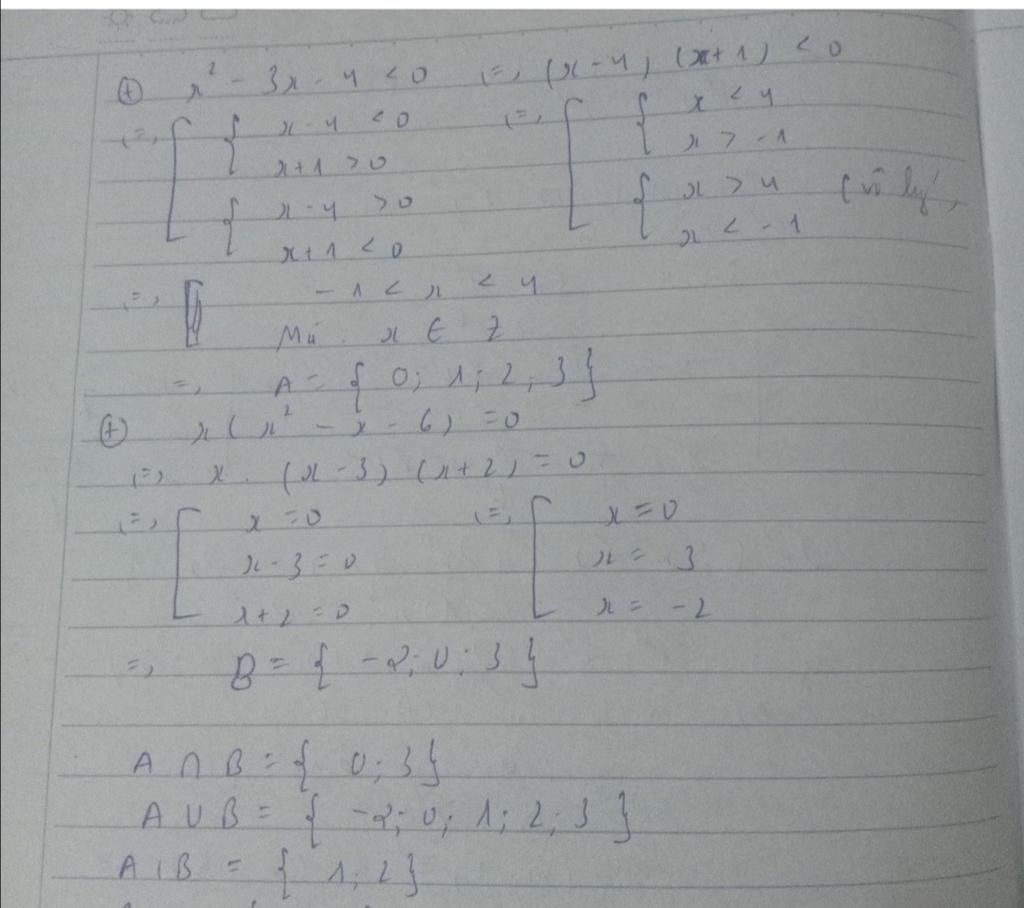 ⊕ x² - 3x - 4 < 0 (=) (x-4) (x+1) < 0
(=) [ { x-4 < 0 (=) [ { x < 4
x+1 > 0 x > -1
{ x-4 > 0 { x > 4 (vô lý)
x+1 < 0 x < -1
(=) -1 < x < 4
Mà x ∈ Z
=) A = { 0; 1; 2; 3 }
⊕ x ( x² - x - 6) = 0
(=) x. (x-3) (x+2) = 0
(=) [ x = 0 (=) [ x = 0
x-3 = 0 x = 3
x+2 = 0 x = -2
=) B = { -2; 0; 3 }
A ∩ B = { 0; 3 }
A ∪ B = { -2; 0; 1; 2; 3 }
A \ B = { 1; 2 }